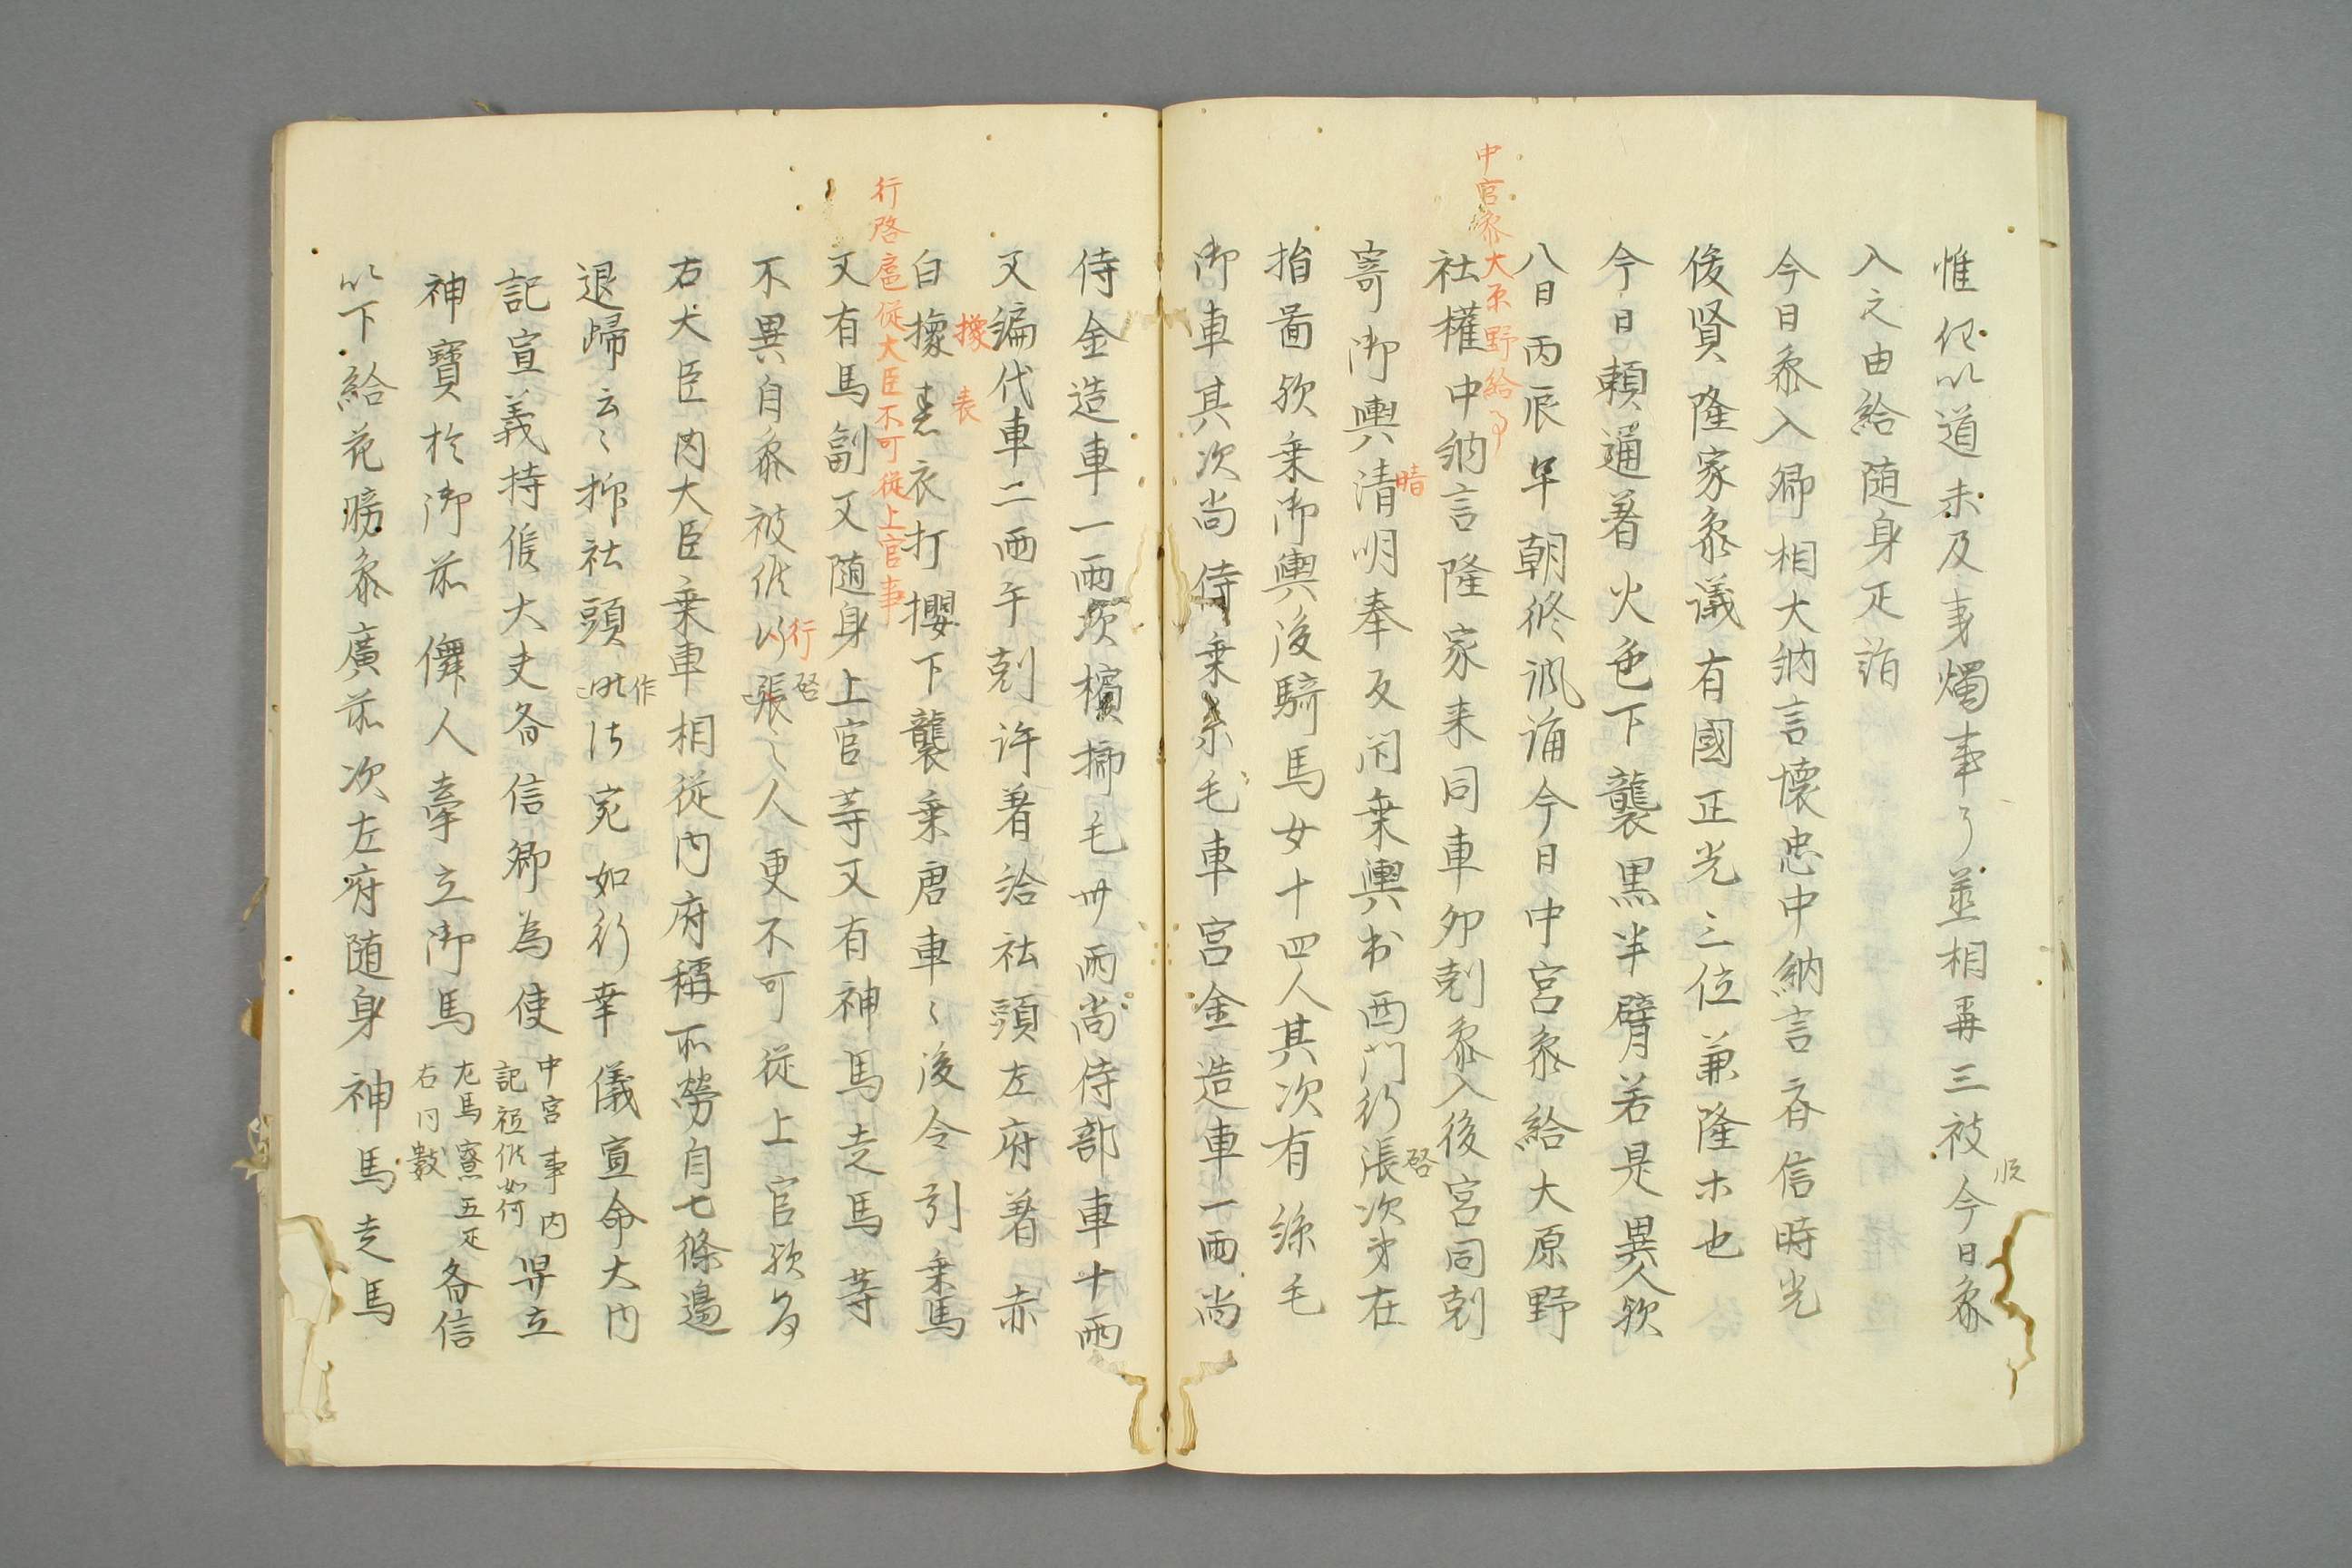 惟任以道未及身燭事了並相再三被今日參
入之由給随身疋
今日參入卿相大納言懐忠中納言斉信時光
俊賢隆家參議有國正光三位兼隆木也
今日頼通着火色下襲黒半臂若是異人欤
中宮參大原野給事
八日丙辰早朝修諷誦今日中宮參給大原野
社權中納言隆家来同車卯剋參入後宮同剋
寄御輿清明奉反閇乗輿出西門行張次第在
晴
啓
指啚欤乗御輿後騎馬女十四人其次有絲毛
御車其次尚侍乗糸毛車宮金造車一両尚
侍金造車一両次檳榔毛卅両尚侍部車十両
又編代車二両午剋許着給社頭左府着赤
白橡表衣打櫻下襲乗唐車〻後令引乗馬
橡
表
行啓扈從大臣不可從上官事
又有馬副又随身上官等又有神馬走馬等
不異自參被供行張〻人更不可従上官欤多
行
啓
右大臣内大臣乗車相従内府稱所勞自七條邊
退歸云〻抑社頭作法宛如行幸儀宣命大内
作
記宣義持候大夫斉信卿為使中宮事内記祗候如何舁立
神寳於御前儛人牽立御馬左馬寮五疋右同數斉信
以下給花
參廣前次左府随身神馬走馬